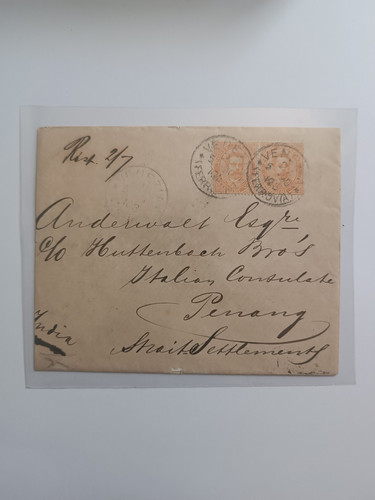 Rix. 2/7
VEN
FERROVIA
VEN
FERROVIA
Anderwalt Esqre
c/o Huttenbach Bro's
Italian Consulate
Penang
Strait Settlements
India